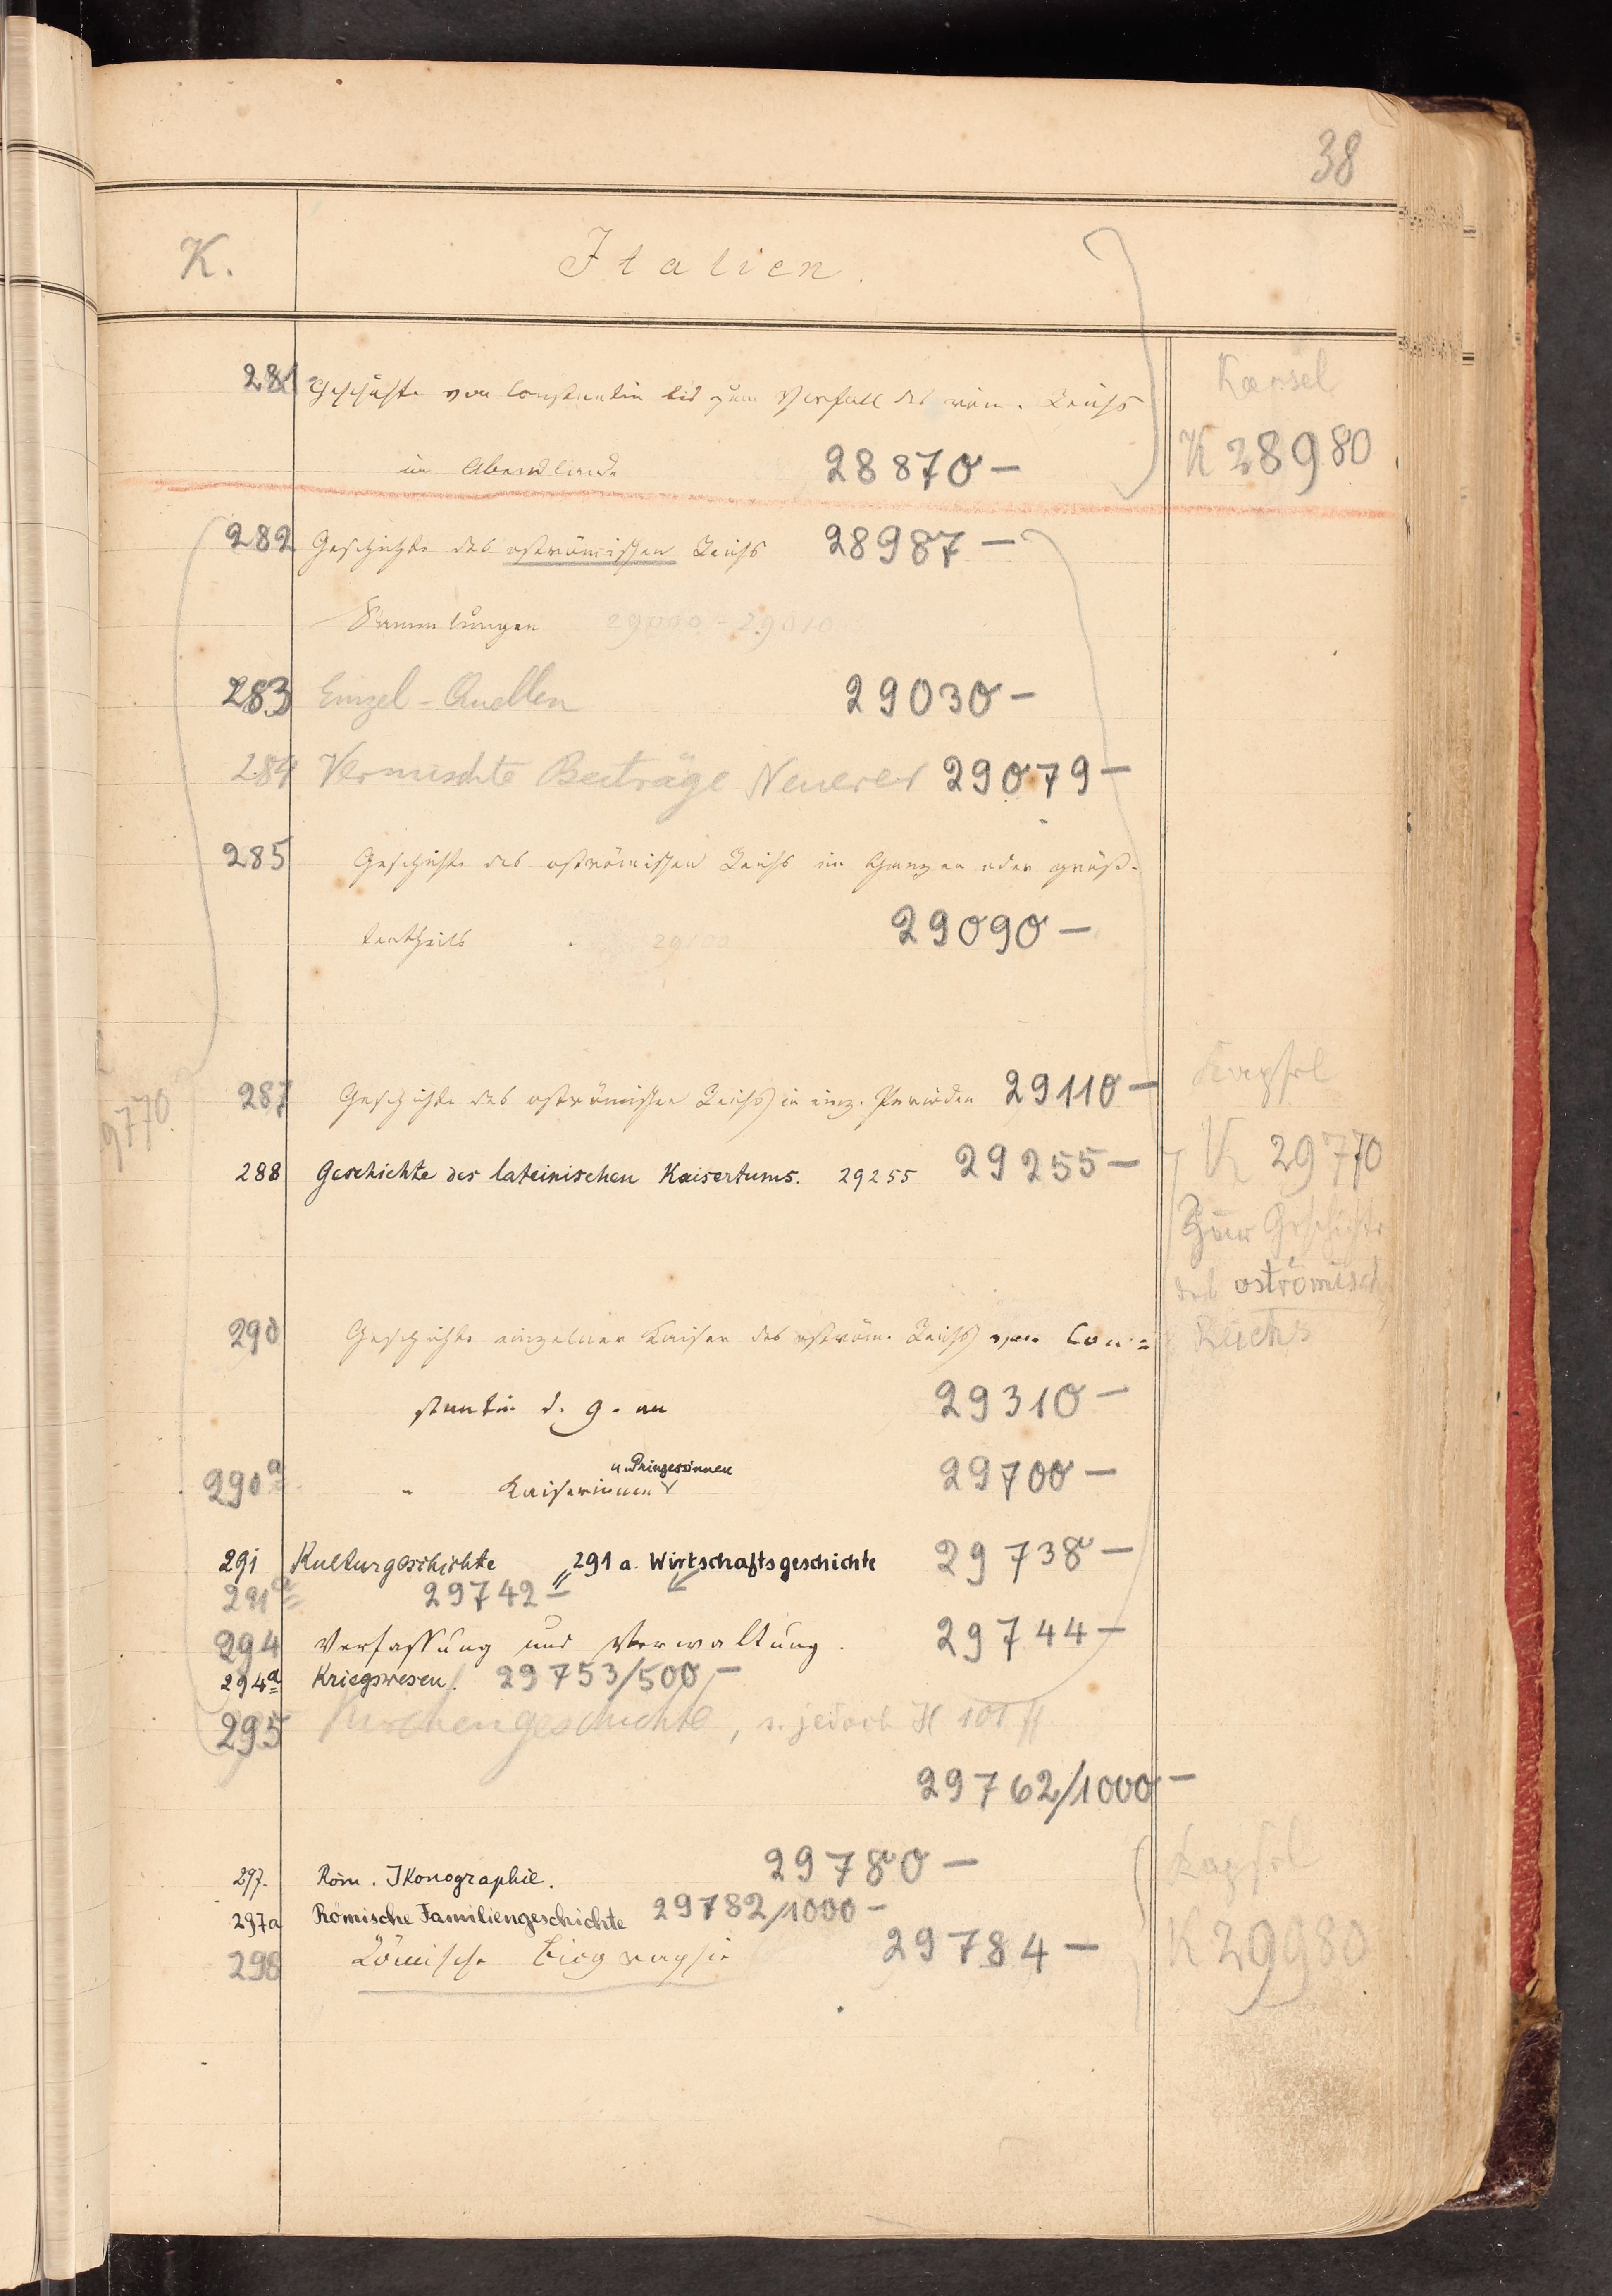 38
K. Italien.
281 Geschichte von Constantin bis zum Verfall des röm. Reichs
im Abendlande 28870 —
Kapsel
K 28980
282 Geschichte des oströmischen Reichs 28987 —
Sammlungen 29000 - 29010
283 Einzel-Quellen 29030 —
284 Vermischte Beiträge Neuerer 29079 —
285 Geschichte des oströmischen Reichs im Ganzen oder größ-
tentheils 29100 29090 —
287 Geschichte des oströmischen Reichs in einz. Perioden 29110 —
Kapsel
9770.
288 Geschichte des lateinischen Kaisertums. 29255 29255 —
K 29770
Zur Geschichte
des oströmisch
Reichs
290 Geschichte einzelner Kaiser des oström. Reichs von Con=
stantin d. g. an 29310 —
u. Prinzessinnen
290a " Kaiserinnen 29700 —
291 Kulturgeschichte 291a. Wirtschaftsgeschichte 29738 —
291a 29742 —
294 Verfassung und Verwaltung. 29744 —
294a Kriegswesen. 29753/500 —
295 Kirchengeschichte, s. jedoch H 101 ff
29762/1000 —
297. Röm. Ikonographie. 29780 —
Kapsel
297a Römische Familiengeschichte 29782/1000 —
298 Römische Biographie 29784 —
K 29980